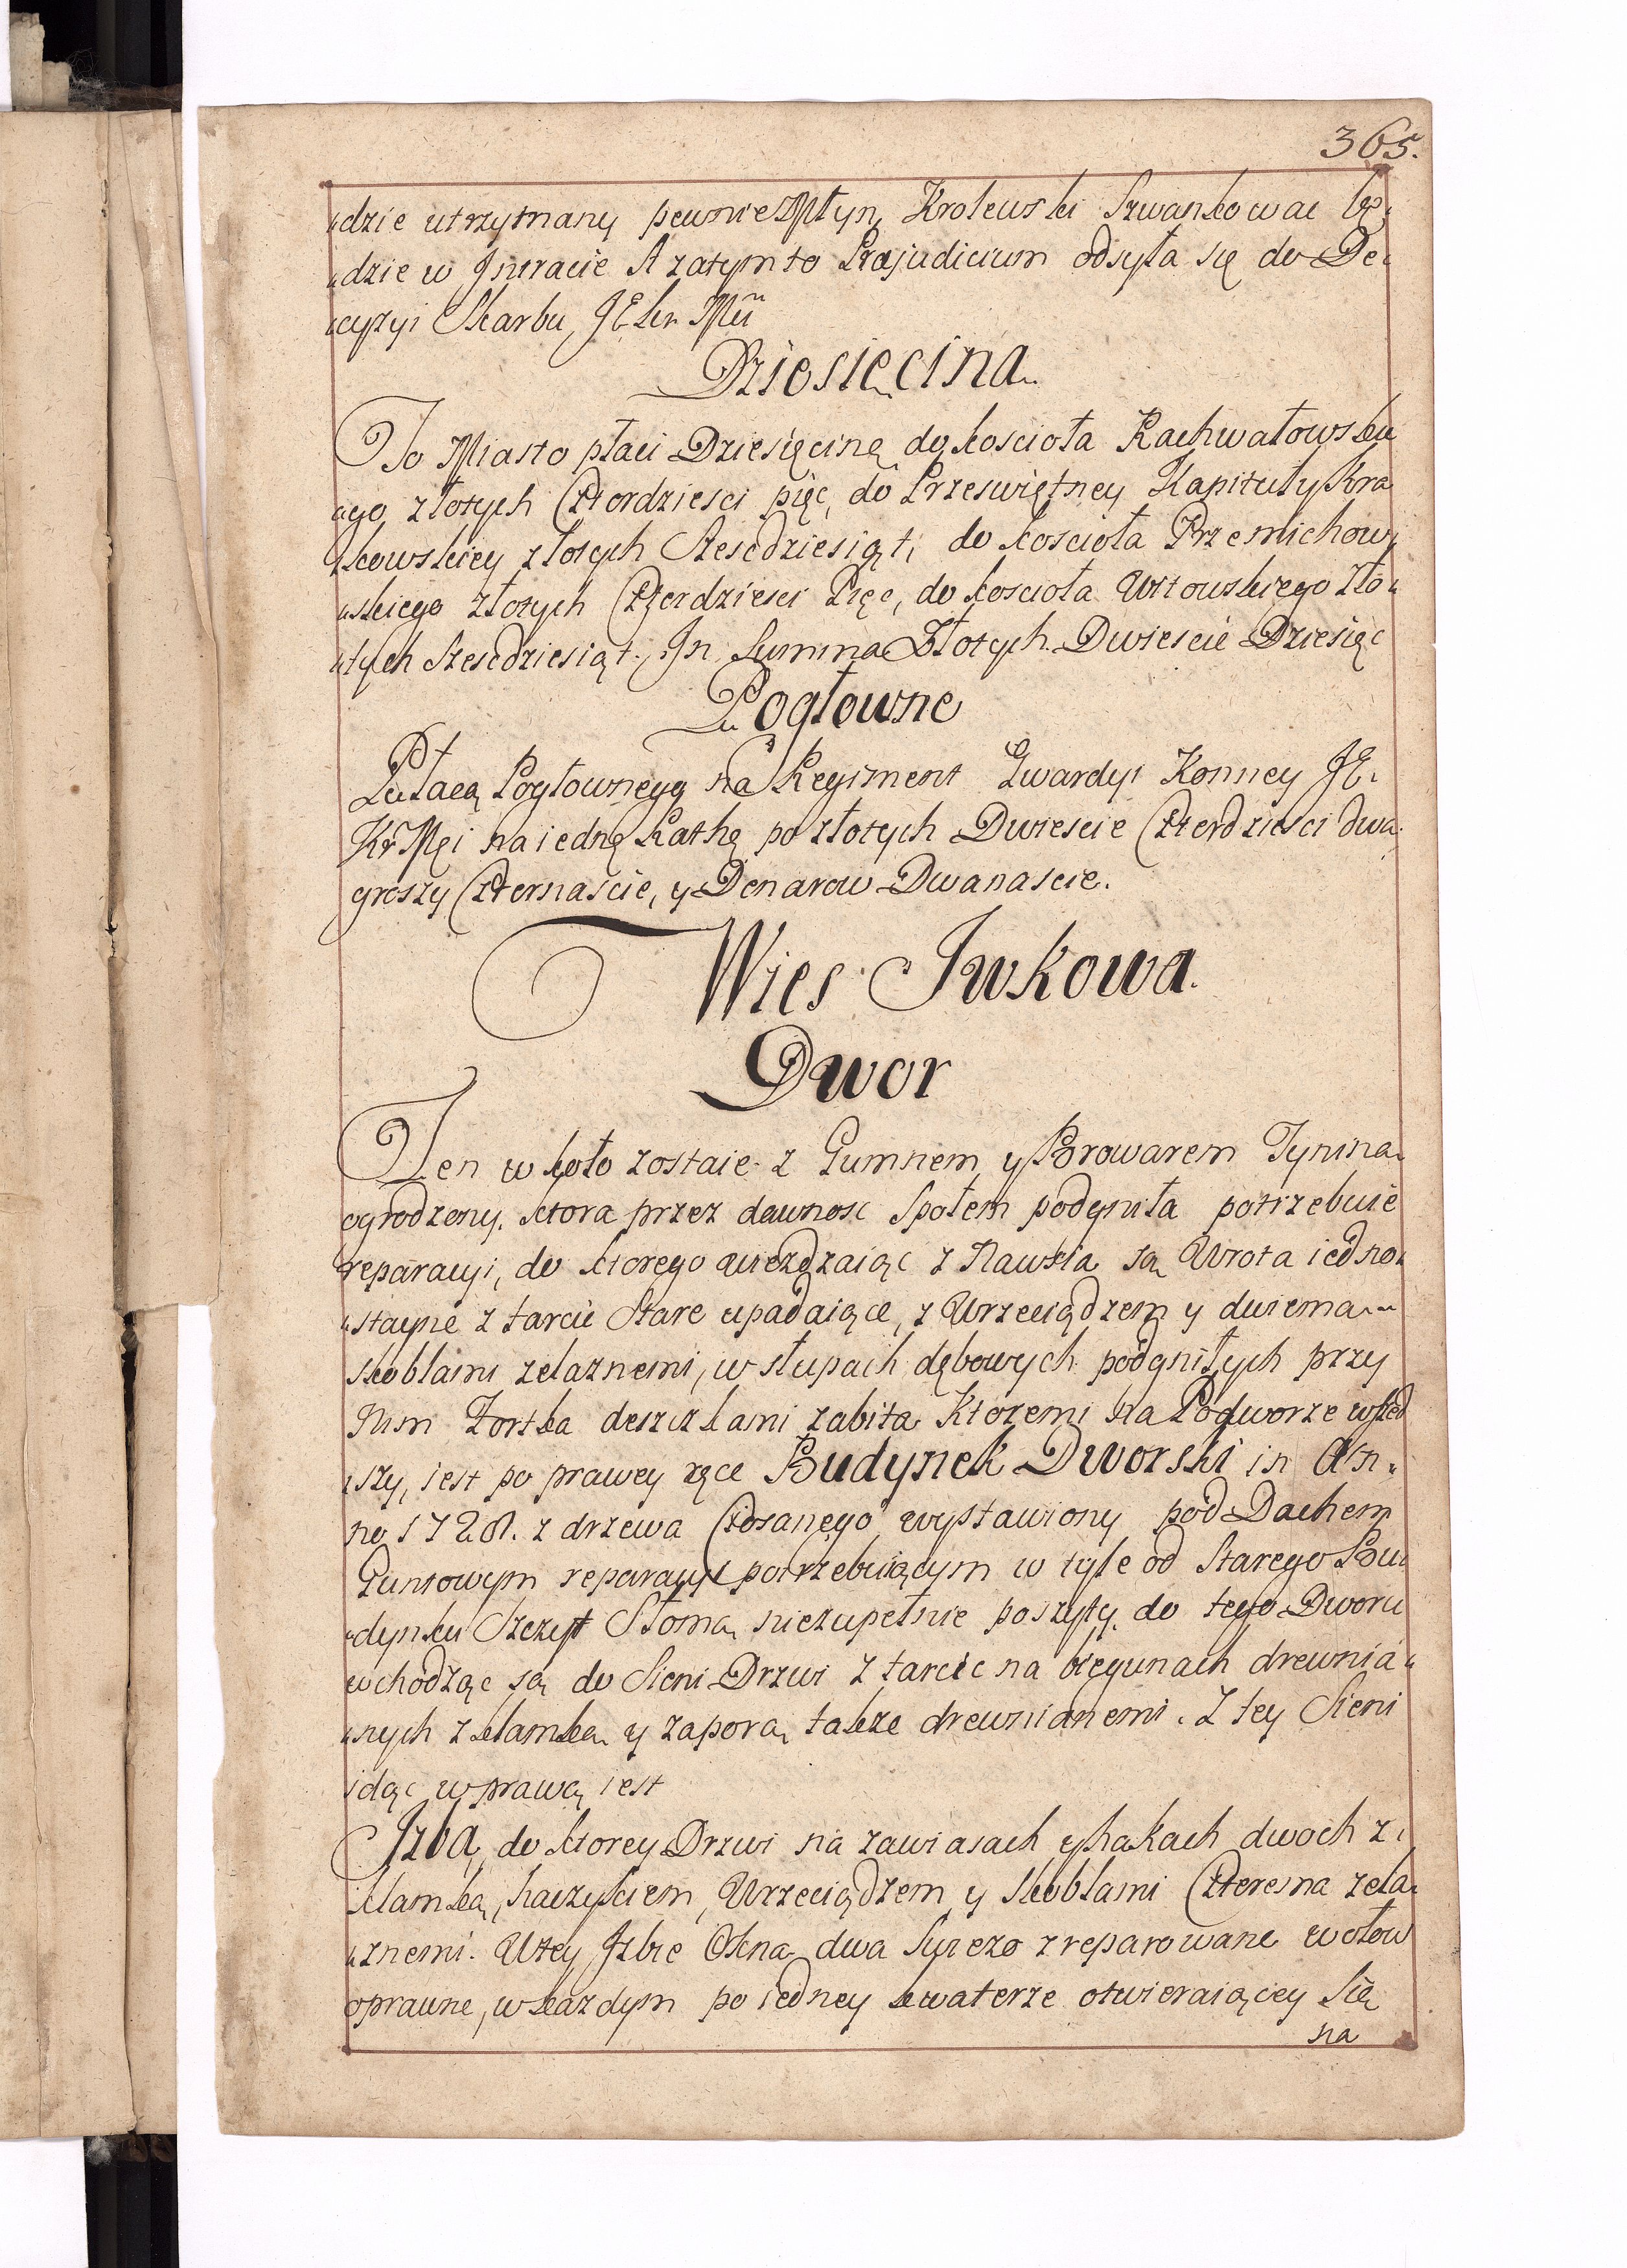 365.
„dzie utrzymany pewnie Młyn Krolewski Szwankowac bę„
„dzie w Jntracie A zatym to Præjudicium odsyła się do De„
„cyzyi Skarbu JEKr Mći
Dziesięcina
To Miasto płaci Dziesięcinę do Koscioła Rachwałowsku
„go złotych Czterdziesci pięć, do Przeswiętney Kapituły Kra
„kowskiey złotych Szescdziesiąt, do Koscioła Przemichow„
„skiego złotych Czterdziesci Pięc, do Koscioła Witowskiego Zło„
„tych Szescdziesiąt. Jn Summa Złotych Dwiescie Dziesięć
Pogłowne
Płacą Pogłownego na Regiment Gwardyi Konney JE.
Kr Mći na iednę Rathę po złotych Dwiescie Czterdziesci dwa
groszy Czternascie, y Denarow Dwanascie.
Wies Jwkowa.
Dwor
Ten w koło zostaie z Gumnem y Browarem Tynina
ogrodzony, ktora przez dawnosc Społem podgniła potrzebuie
reparacyi, do ktorego wiezdzaiąc z Nawsia są Wrota iedno„
„stayne z tarcic Stare upadaiące, z Wrzeciądzem y dwiema
skoblami zelaznemi, w słupach dębowych podgniłych przy
Nim Fortka deszczkami zabita Ktoremi na Podworze wszed
„szy, iest po prawey ręce Budynek Dworski in An„
no 1728. z drzewa Ciosanego wystawiony pod Dachem
Guntowym reparacyi potrzebuiącym w tyle od Starego Bu„
„dynku Szczyt Słomą niezupełnie poszyty. do tego Dworu
wchodząc są do Sieni Drzwi z tarcic na biegunach drewnia„
„nych z klamką y zaporą takze drewnianemi. Z tey Sieni
idąc w prawą iest
Jzba, do ktorey Drzwi na zawiasach y hakach dwoch z
klamką, haczykiem, Wrzeciądzem y Skoblami Czterema zela„
„znemi. W tey Jzbie Okna dwa Swiezo zreparowane w ołow
oprawne, w kazdym po iedney kwaterze otwieraiącey Się
na